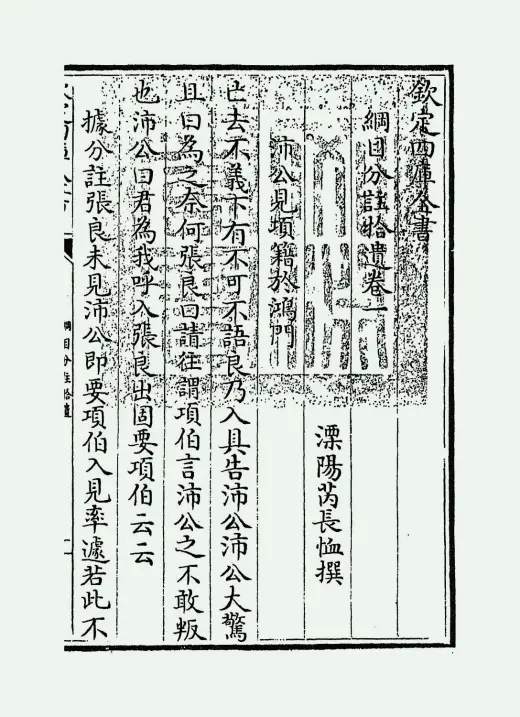 欽定四庫全書
綱目分註拾遺卷一
溧陽芮長恤撰
沛公見項籍於鴻門
亡去不義下有不可不語良乃入具告沛公沛公大驚
且曰為之奈何張良曰請往謂項伯言沛公之不敢叛
也沛公曰君為我呼入張良出固要項伯云云
據分註張良未見沛公即要項伯入見率遽若此不
綱目分註拾遺